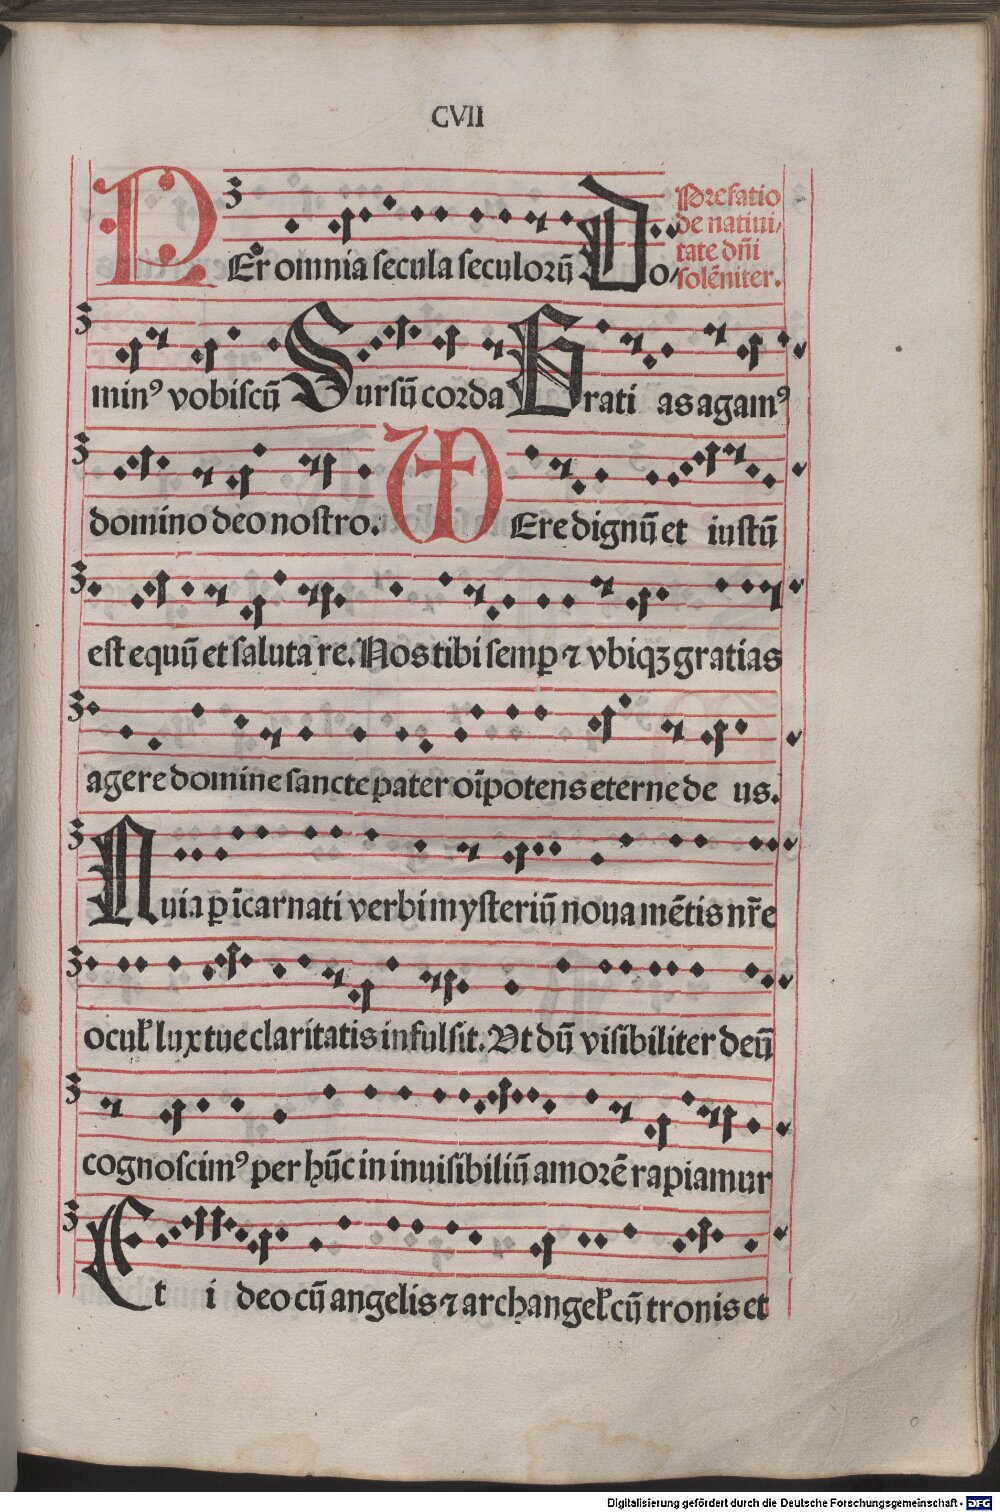 CVII
Prefatio
de natiui⸗
tate dn̄i
solēniter.
PEr omnia secula seculorū Do⸗
minꝰ vobiscū Sursū corda Grati as agamꝰ
domino deo nostro. VEre dignū et iustū
est equū et saluta re. Nos tibi semꝑ ⁊ vbiqꝫ gratias
agere domine sancte pater oīpotens eterne de us.
Quia ꝑ īcarnati verbi mysteriū noua mētis nr̄e
ocul̕ lux tue claritatis infulsit. Ut dū visibiliter deū
cognoscimꝰ per hūc in inuisibiliū amorē rapiamur
Et i deo cū angelis ⁊ archangel̕ cū tronis et
Digitalisierung gefördert durch die Deutsche Forschungsgemeinschaft - DFG